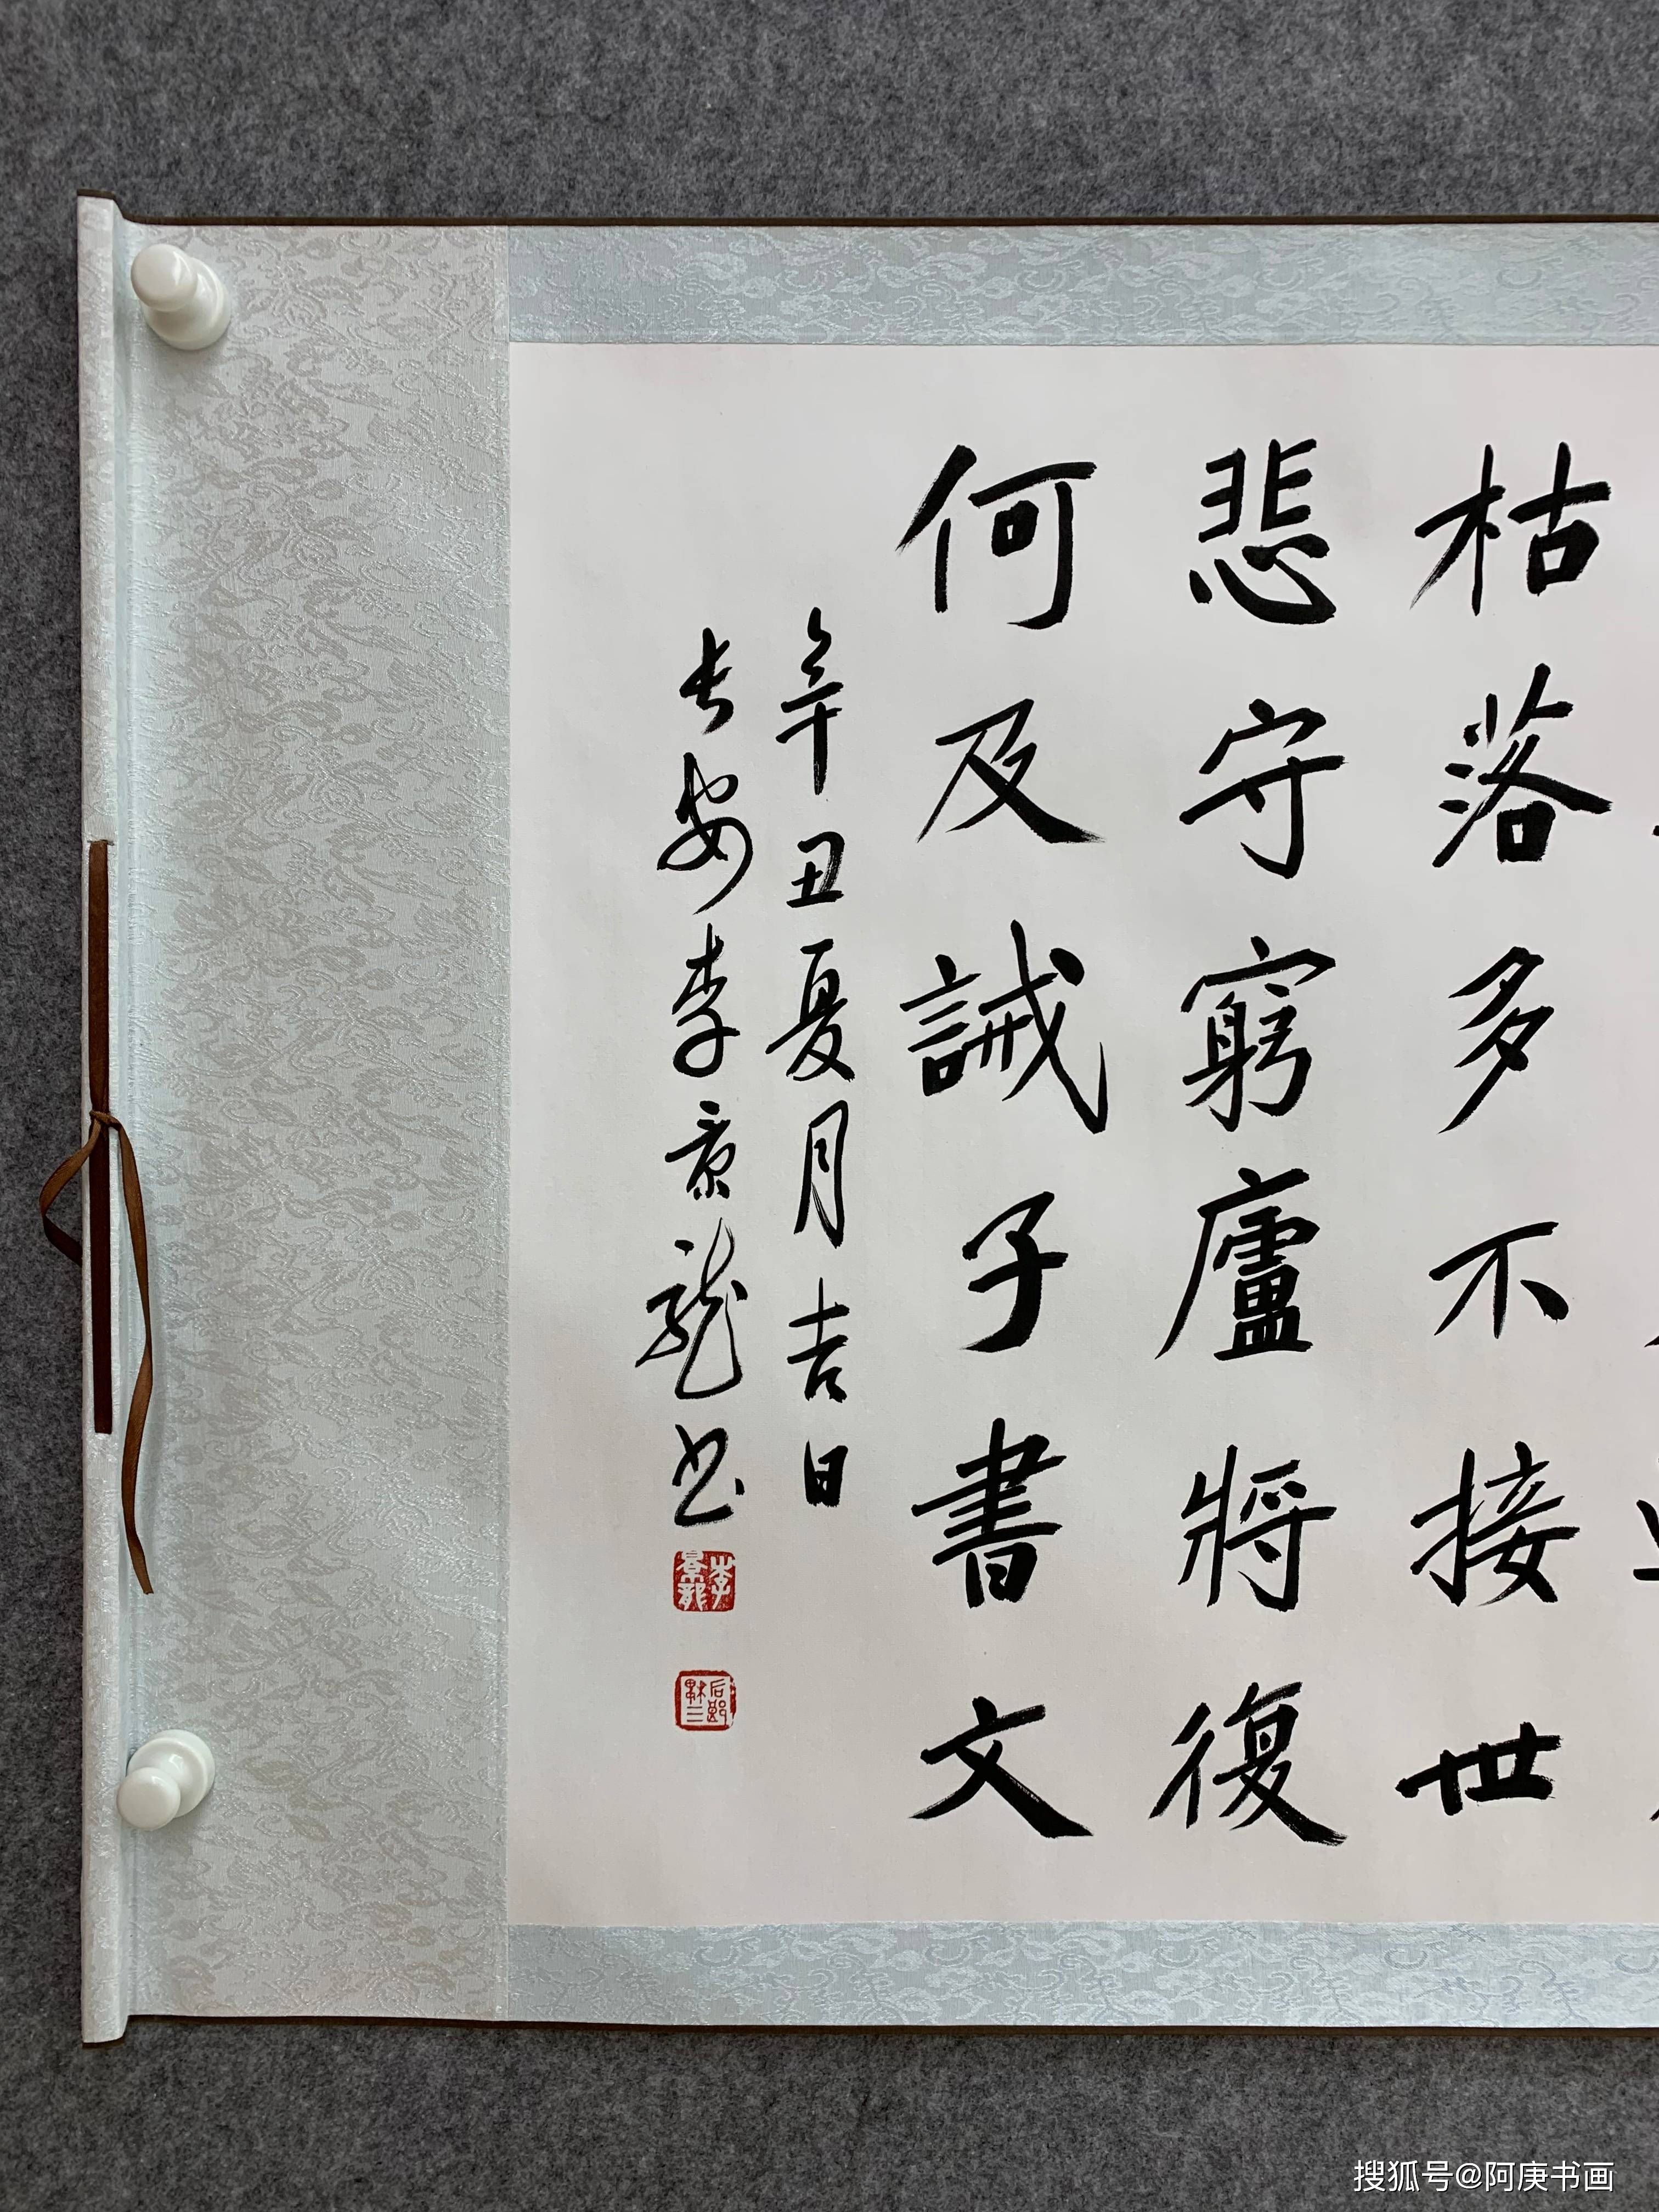 枯落多不接世
悲守窮廬將復
何及誡子書文
辛丑夏月吉日
长安李景龍书
李景龍
搜狐号@阿庚书画